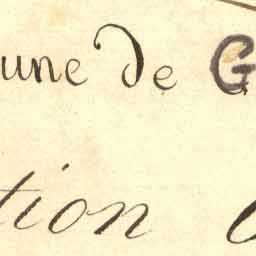 une de G
tion